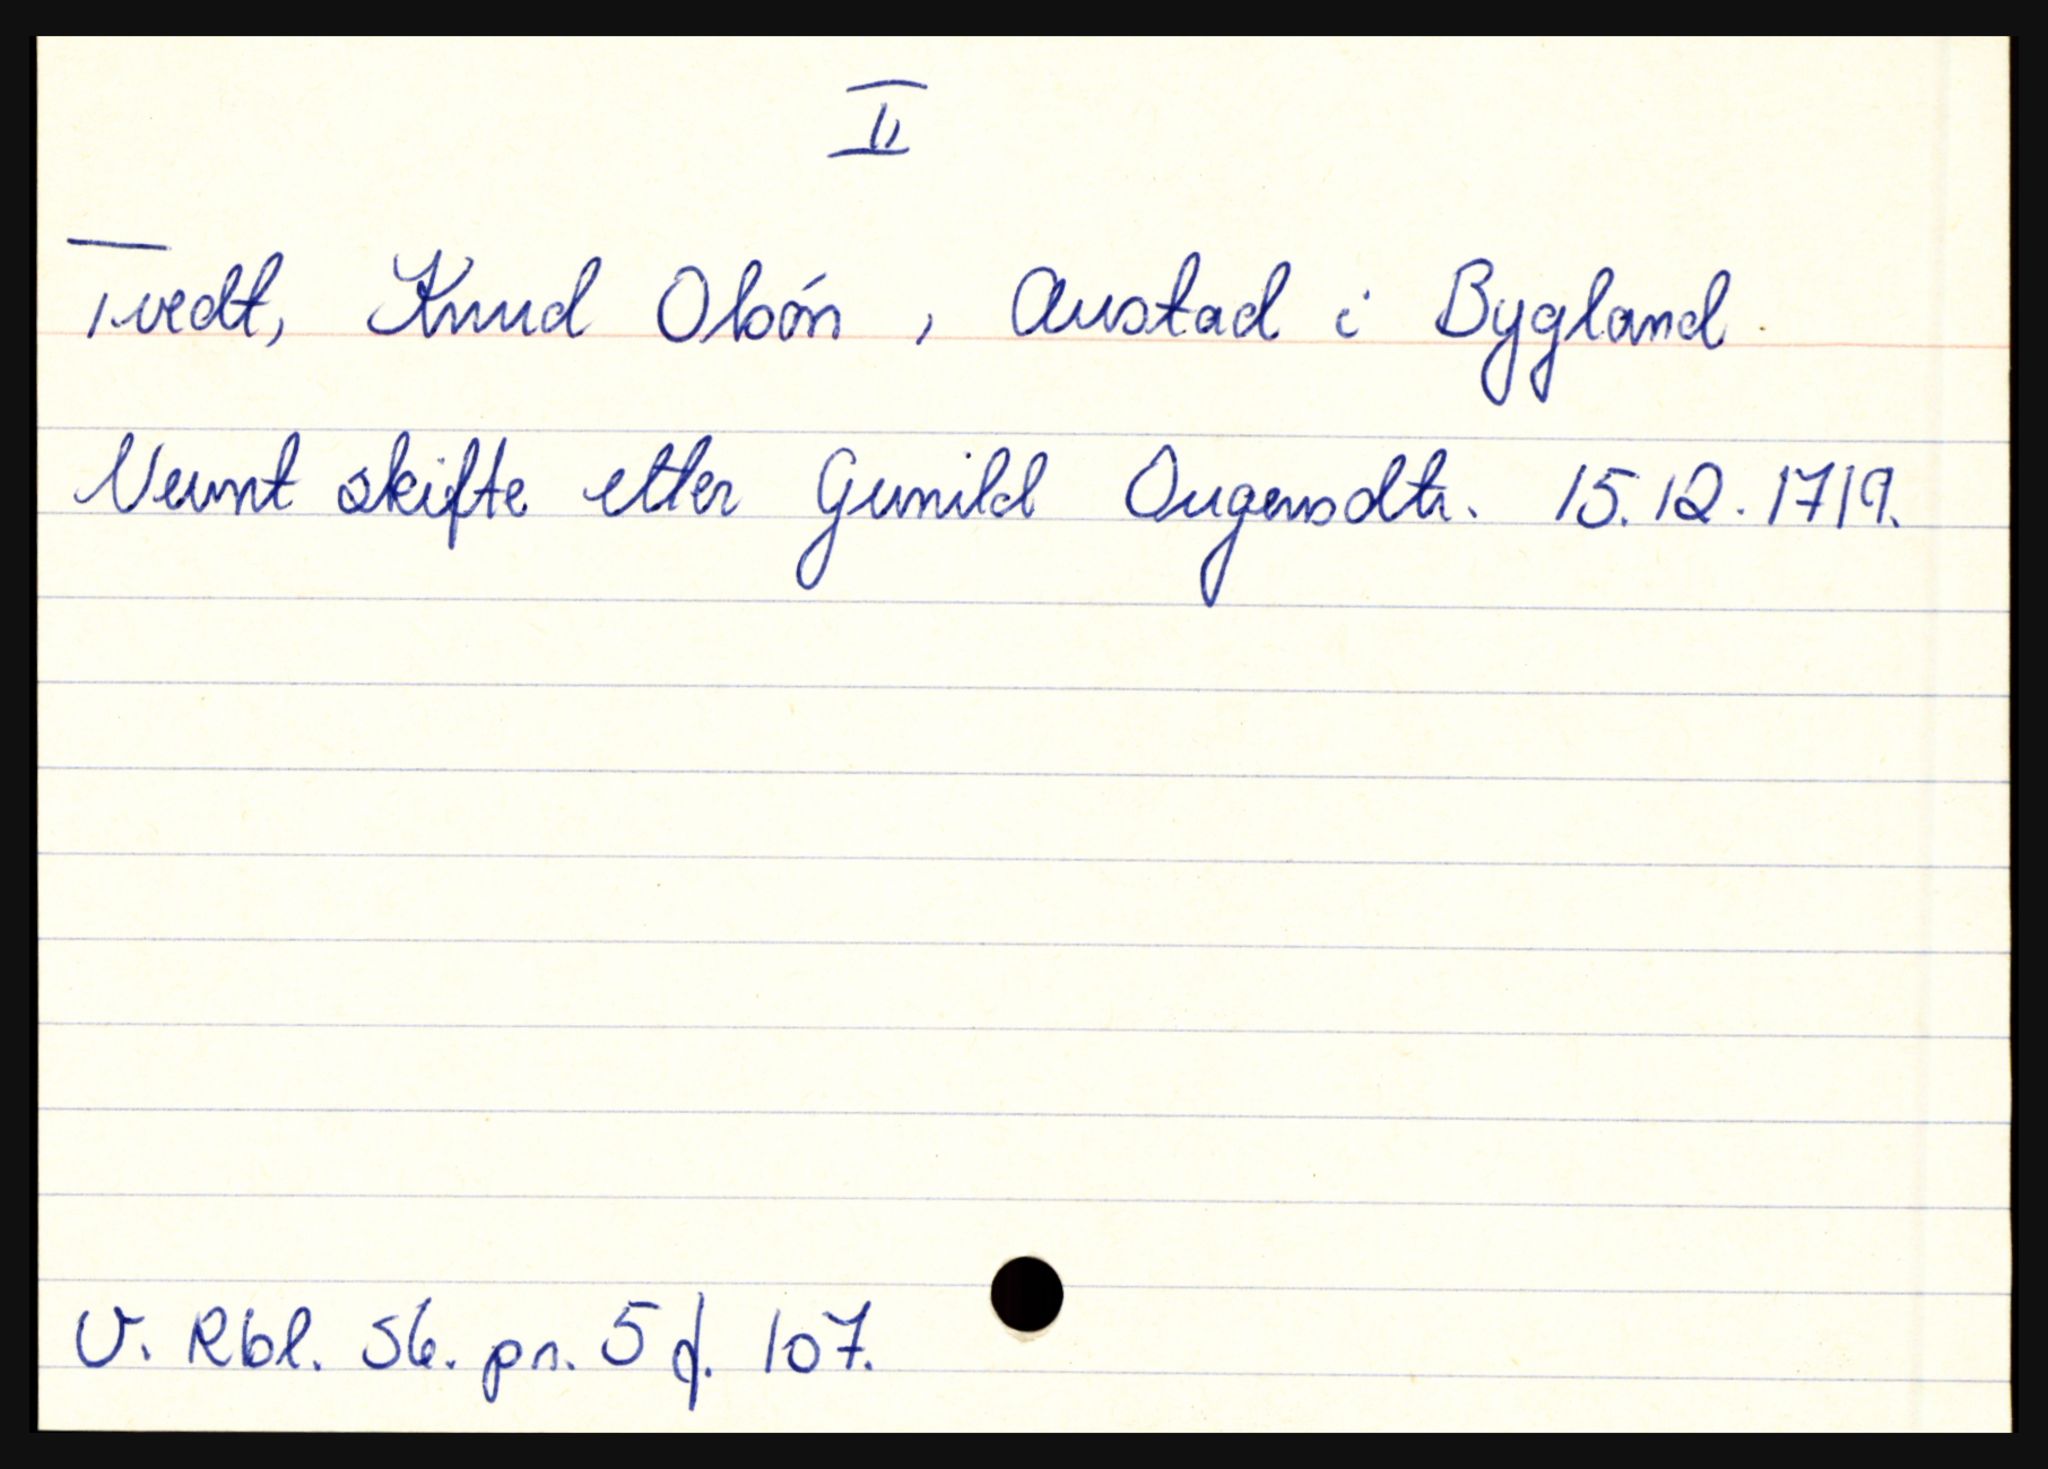 II
Tvedt, Knud Olsón, Austad i Bygland.
Nevnt skifte etter Gunild Ougensdtr. 15.12.1719.
V. Rbl. 56. pr. 5 f. 107.